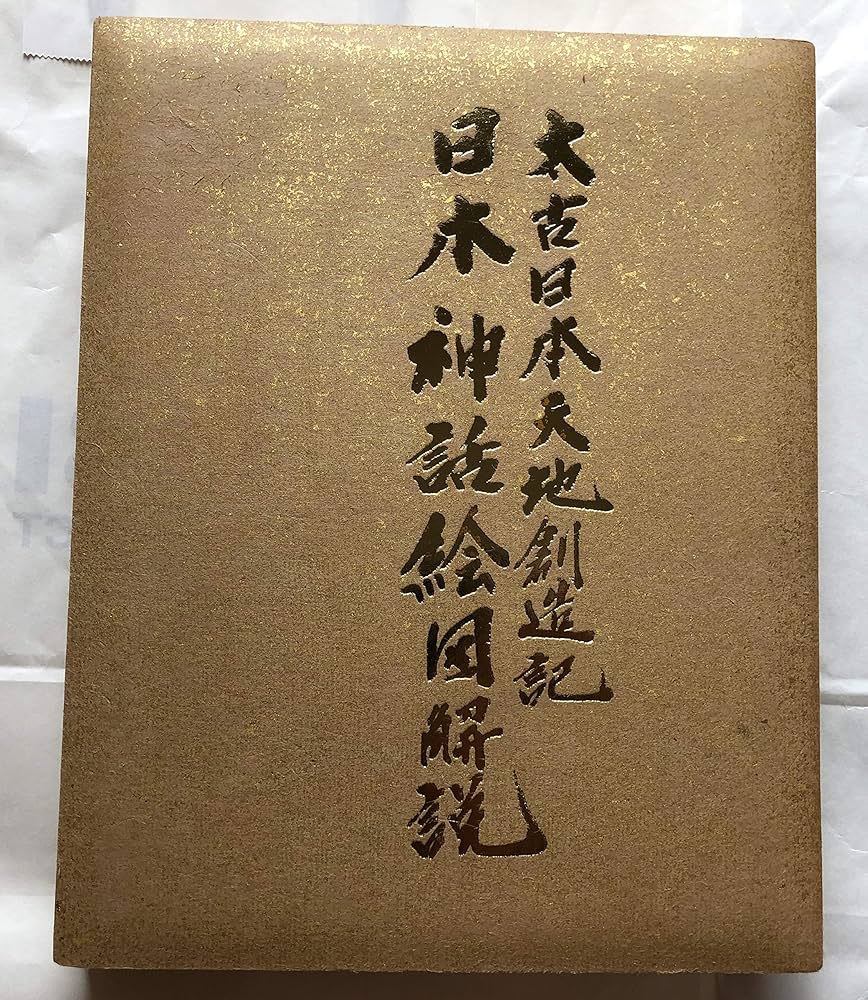 太古日本天地創造記
日本神話絵図解説
CT